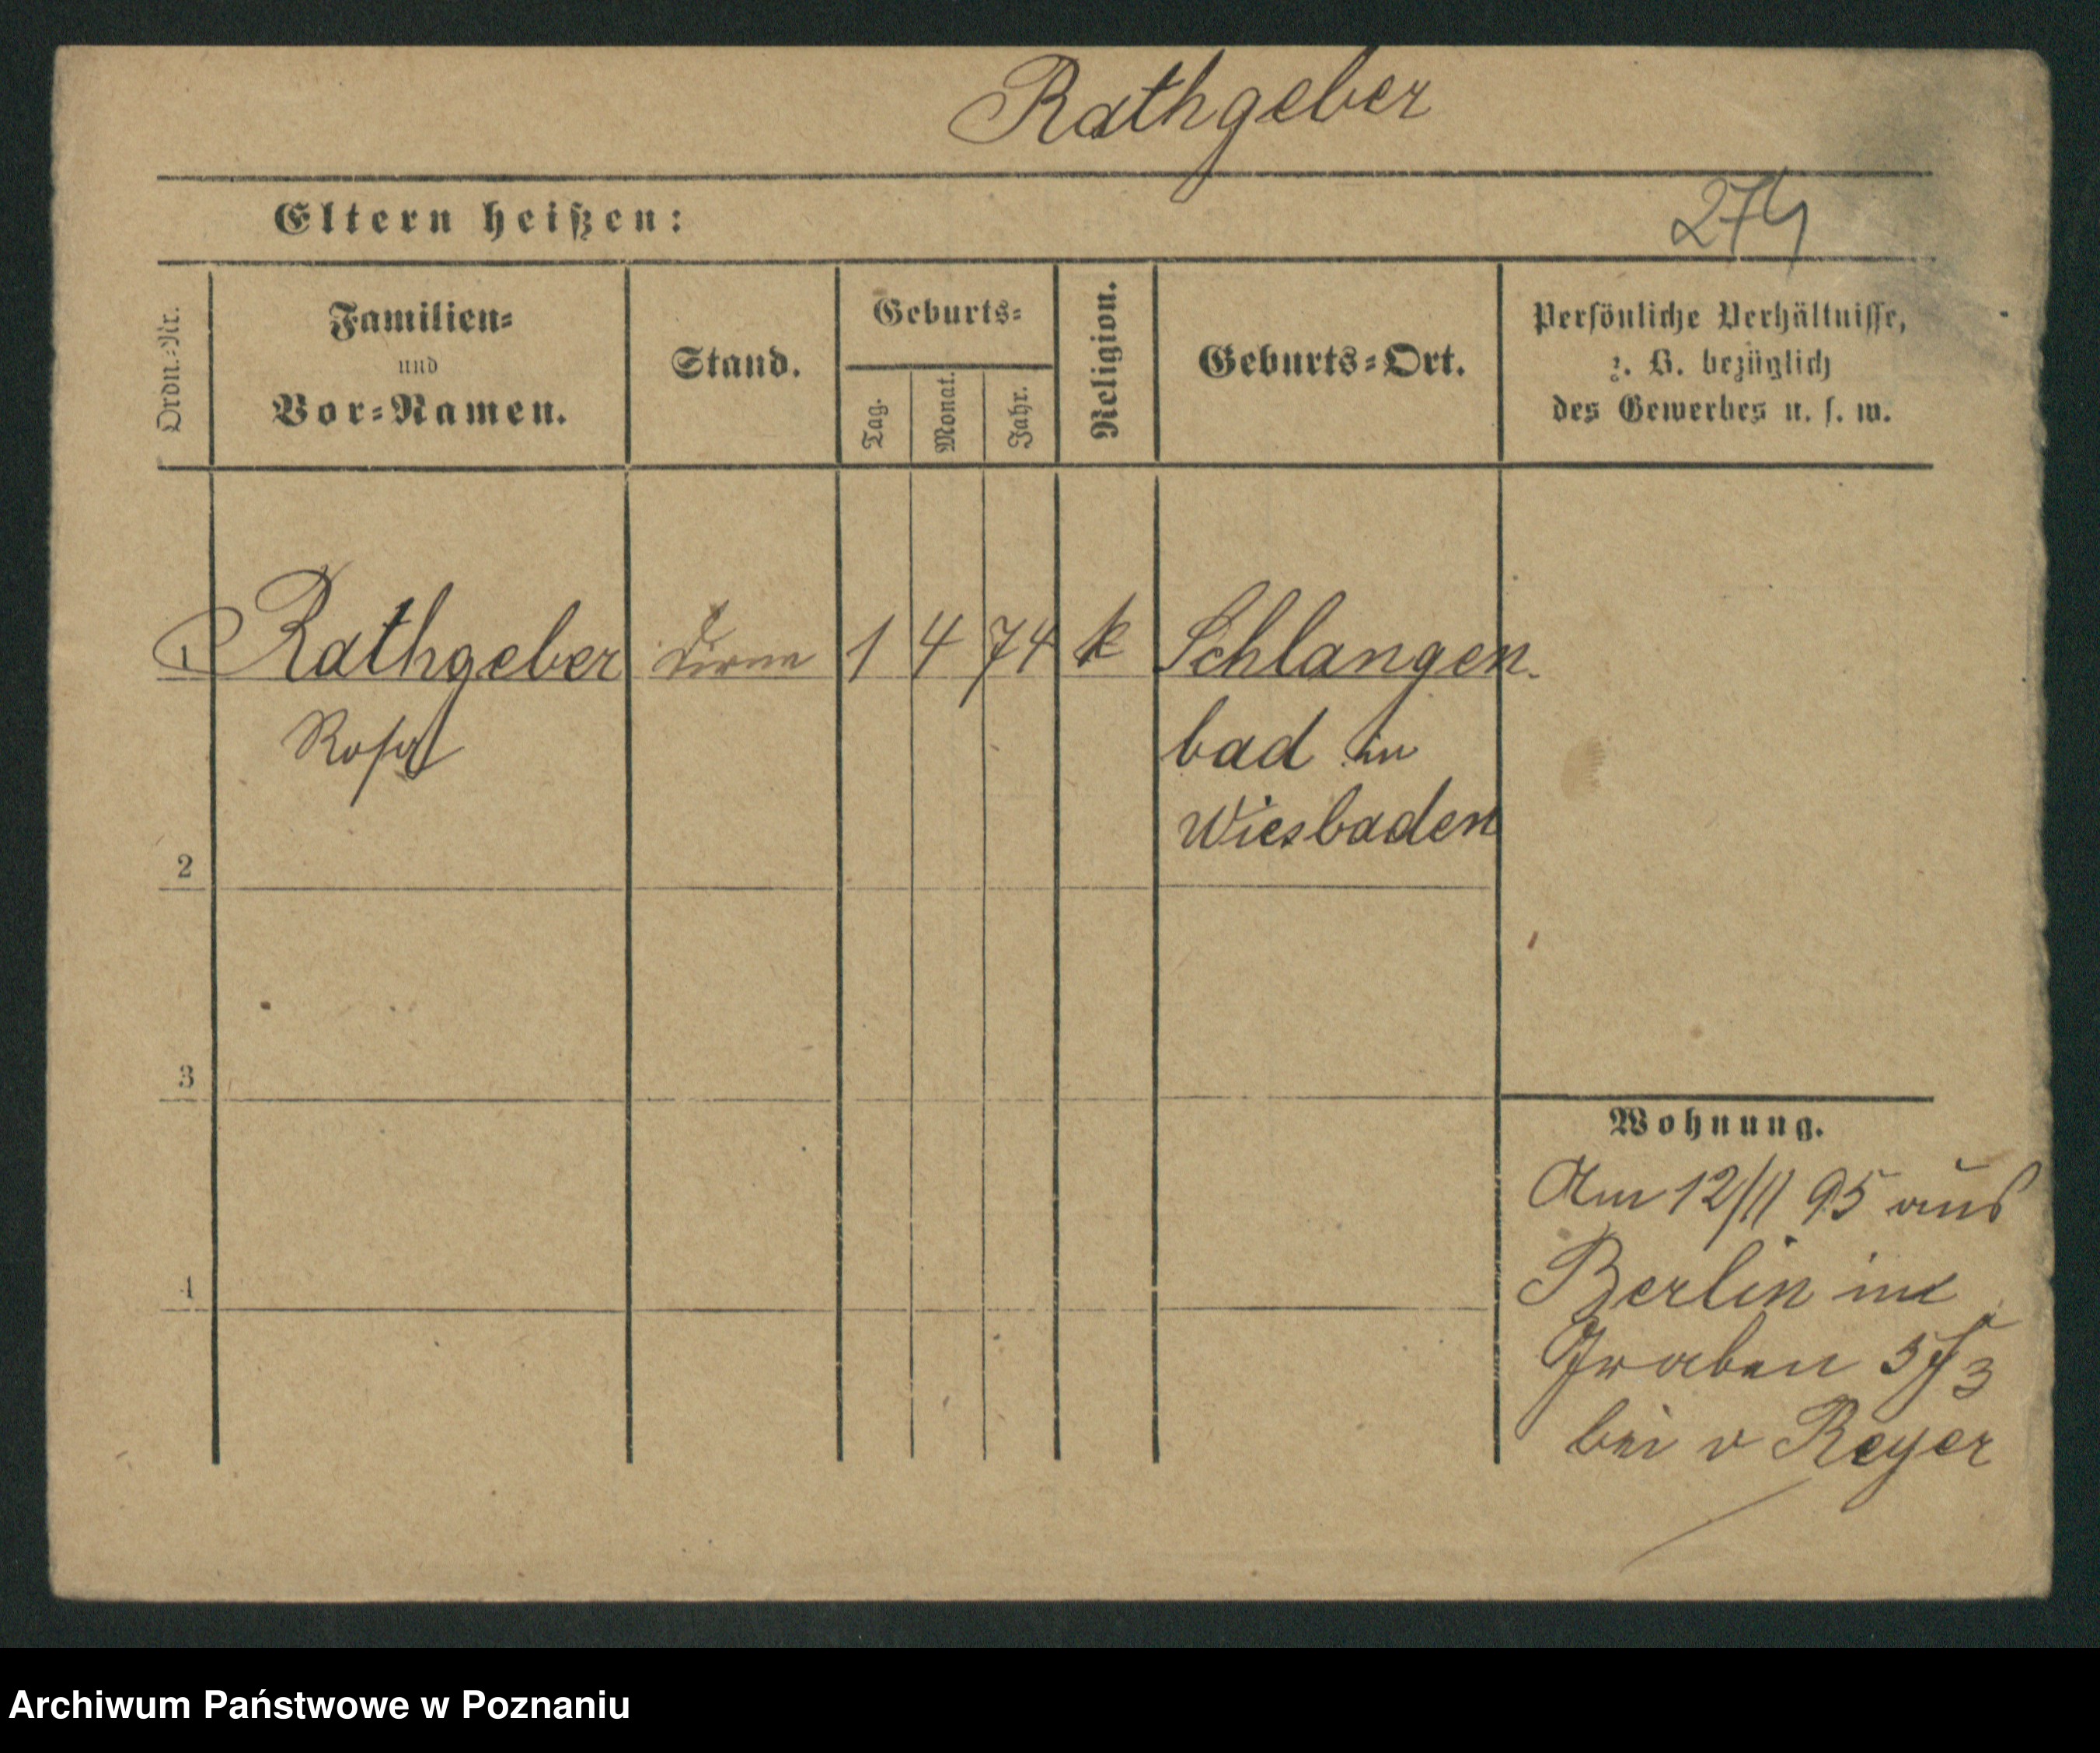 Rathgeber
274
Eltern heißen:
Ordn.-Nr.
Familien-
und
Vor-Namen.
Stand.
Geburts-
Tag.
Monat.
Jahr.
Religion.
Geburts-Ort.
Persönliche Verhältnisse,
z. B. bezüglich
des Gewerbes u. s. w.
1 Rathgeber Dirne 1 4 74 k Schlangen-
Rosa bad in
Wiesbaden
2
3
4
Wohnung.
Am 12/11 95 aus
Berlin
Graben
bei v Reyer
Archiwum Państwowe w Poznaniu